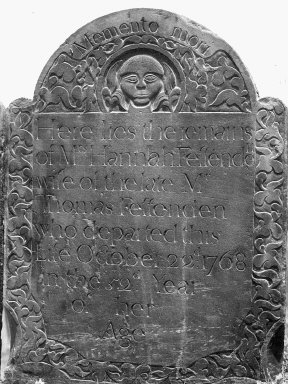 Memento mori
Here lies the remains
of Mrs Hannah Feſſende
wife of the late Mr
Thomas Feſſenden
who departed this
Life October 20th 1768
in the Year
of her
Age